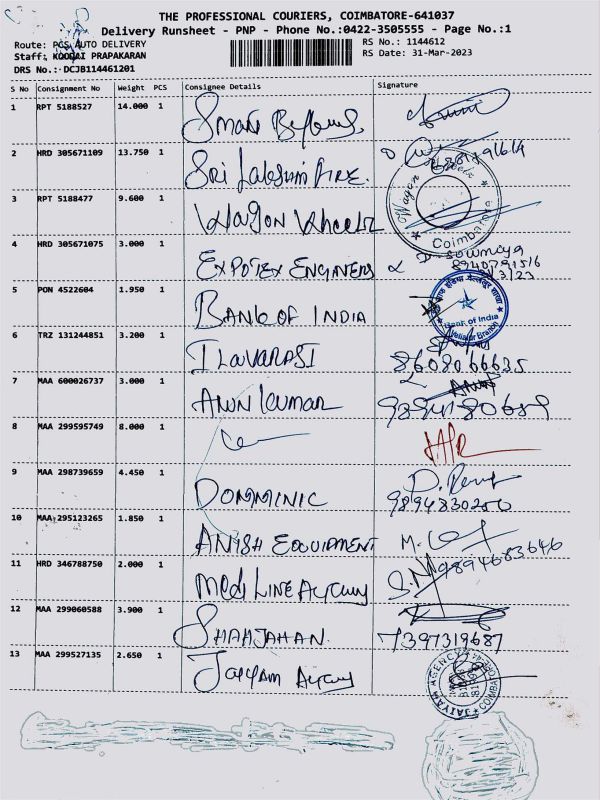 THE PROFESSIONAL COURIERS, COIMBATORE-641037
Delivery Runsheet - PNP - Phone No.:0422-3505555 - Page No.:1
Route: PCS AUTO DELIVERY
RS No.: 1144612
Staff: KOODAI PRAPAKARAN
RS Date: 31-Mar-2023
DRS No.: DCJB114461201
S No Consignment No Weight PCS Consignee Details Signature
1 RPT 5188527 14.000 1 Smart
2 HRD 305671109 13.750 1 Sri Lakshmi
3 RPT 5188477 9.600 1 Wagon Wheelz
Wagon Wheelz Coimbatore
4 HRD 305671075 3.000 1 EXPOTEX ENGINEERS
Sowmiya
5 PON 4522604 1.950 1 BANK OF INDIA
Bank of India
Branch
6 TRZ 131244851 3.200 1 ILAVARASI
8608066635
7 MAA 600026737 3.000 1 ARUN KUMAR
8 MAA 299595749 8.000 1
9 MAA 298739659 4.450 1 DOMMINIC
9894830250
10 MAA 295123265 1.850 1 ANISH EQUIPMENT
9894683646
11 HRD 346788750 2.000 1 Medi LINE Agency
12 MAA 299060588 3.900 1 SHAHJAHAN
7397319687
13 MAA 299527135 2.650 1 Jayam Agency
AGENCY